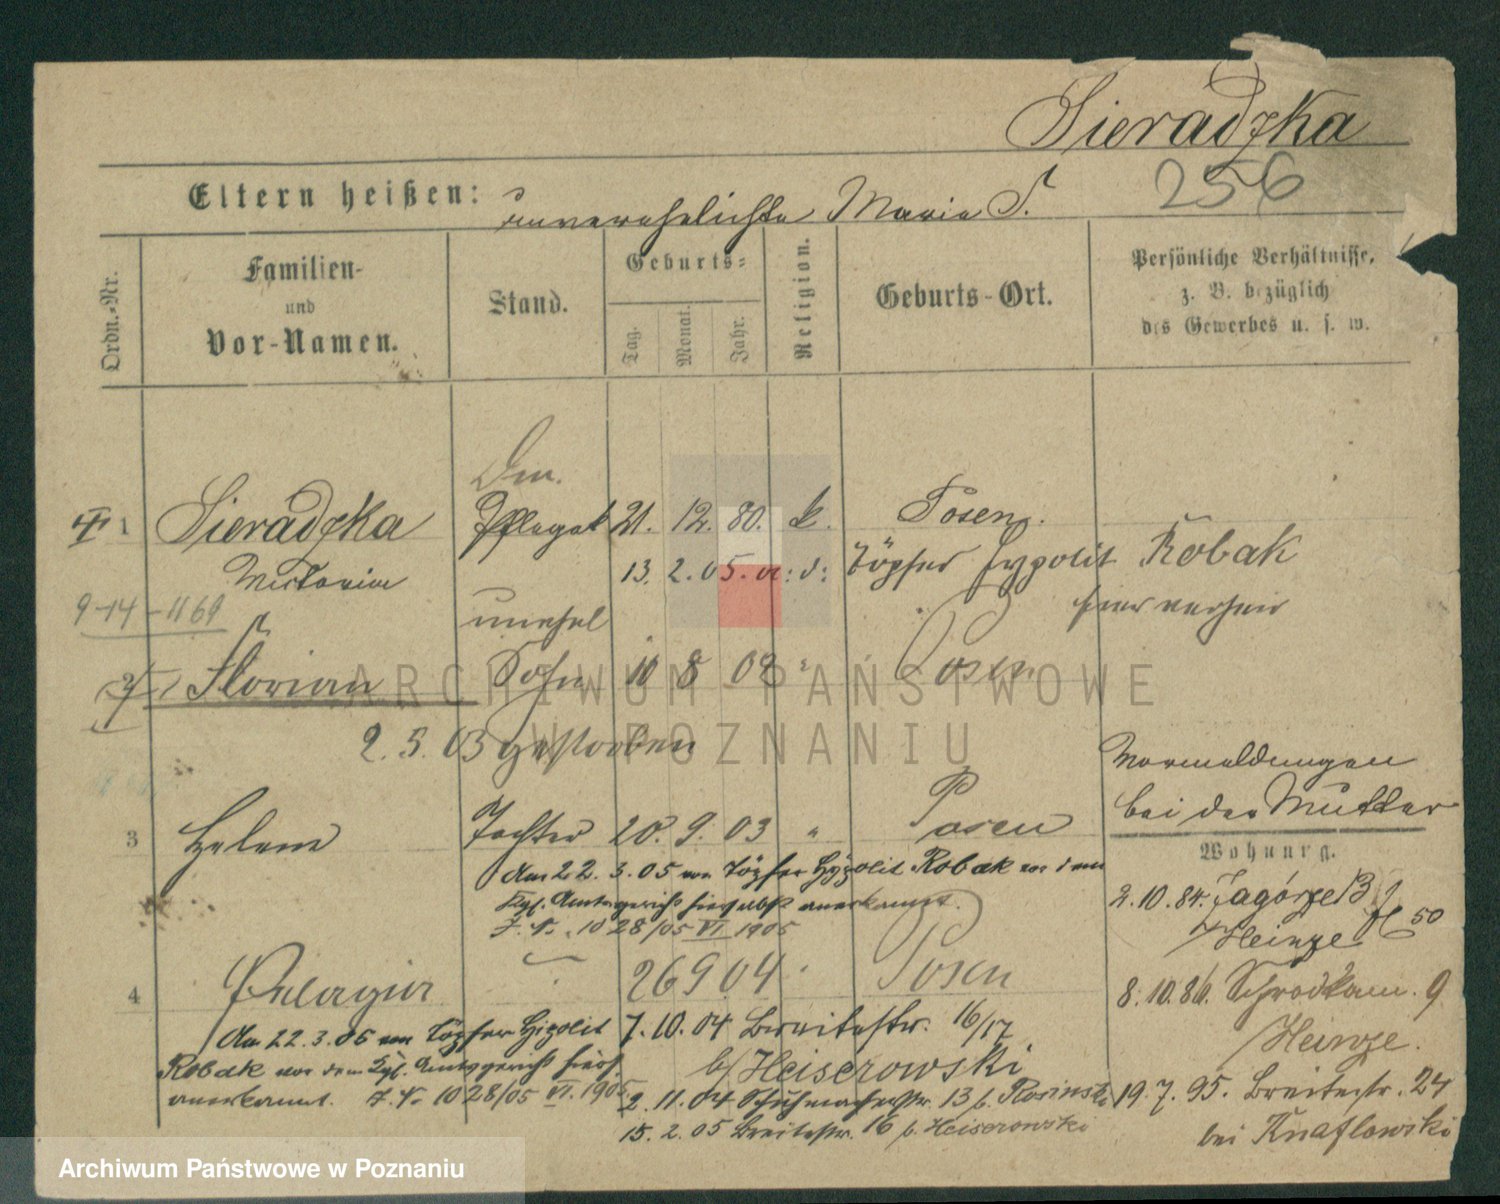 Sieradzka
256
Eltern heißen: unverehelichte Maria S.
Ordn.-Nr.
Familien- und Vor-Namen.
Stand.
Geburts-
Tag. Monat. Jahr.
Religion.
Geburts-Ort.
Persönliche Verhältnisse, z. B. bezüglich des Gewerbes u. s. w.
1 Sieradzka Pflegek 21. 12. 80. k. Posen.
Victoria 13. 2. 05. Töpfer Hypolit Robak
9-14-1169
unehel
2 Florian Sohn 10 8 02 " Posen
2. 5. 03 gestorben
Vormeldungen
bei der Mutter
3 Helene Tochter 20. 9. 03 " Posen
Wohnung.
Am 22. 3. 05 von Töpfer Hypolit Robak vor dem
Kgl. Amtsgericht hierselbst anerkannt.
J. N. 1028/05 VI 1905
2. 10. 84. Zagórze 13
Heinze
50
4 Pelagia " 26 9 04 " Posen
8. 10. 86. Schrodkam. 9
Heinze.
Am 22. 3. 05 von Töpfer Hipolit
Robak vor dem Kgl. Amtsgericht hiers.
anerkannt. J. N. 1028/05 VI. 1905
7. 10. 04 Breitestr. 16/17
b/ Heiserowski
2. 11. 04 Schuhmacherstr. 13 b. Rosinski
15. 2. 05 Breitestr. 16 b. Heiserowski
19. 7. 95. Breitestr. 24
bei Knaflowski
ARCHIWUM PAŃSTWOWE
W POZNANIU
Archiwum Państwowe w Poznaniu